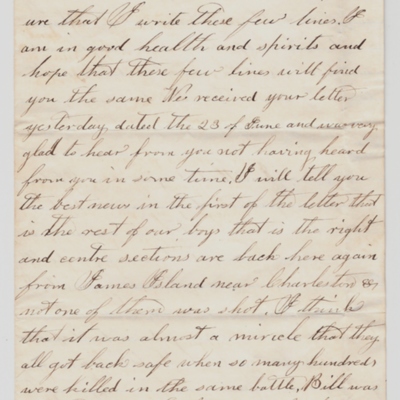 ure that I write these few lines. I
am in good health and spirits and
hope that these few lines will find
you the same We received your letter
yesterday dated the 23 of June and was very
glad to hear from you not having heard
from you in some time. I will tell you
the best news in the first of the letter that
is the rest of our boys that is the right
and centre sections are back here again
from James Island near Charleston &
not one of them was shot, I think
that it was almost a miricle that they
all got back safe when so many hundreds
were killed in the same battle, Bill was